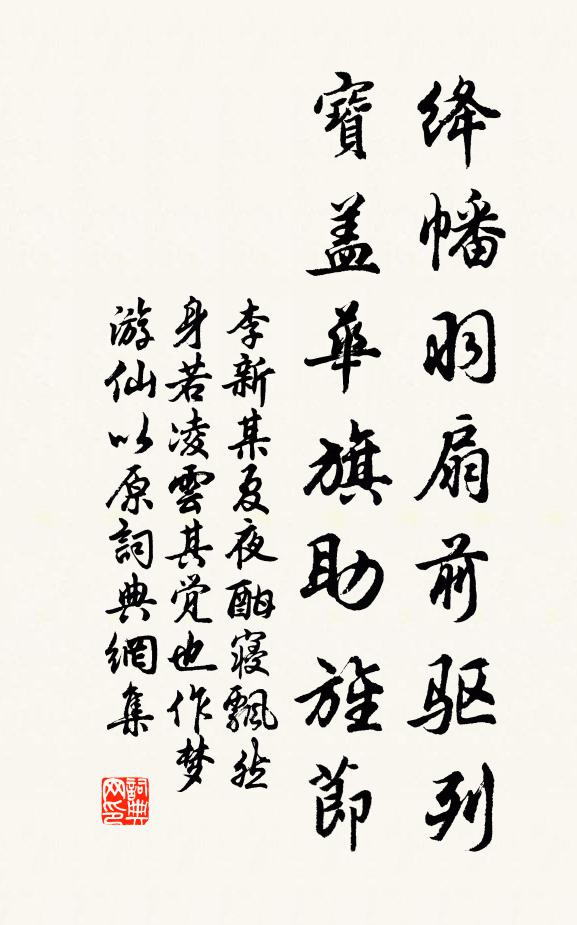 绛幡羽扇前驱列
寶蓋華旗助旌節
李新某夏夜酣寝飄然
身若凌雲其觉也作梦
游仙以原詞典網集
詞典网印